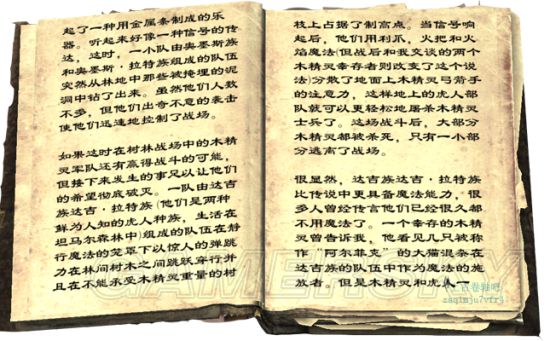 起了一种用金属条制成的乐
器。听起来好像一种信号的传
达，这时，一小队由奥墨斯族
和奥墨斯·拉特族组成的队伍
突然从林地中那些被掩埋的泥
洞中钻了出来。虽然他们人数
不多，但他们出奇不意的袭击
使他们迅速地控制了战场。
如果这时在树林战场中的木精
灵军队还有赢得战斗的可能，
但接下来发生的事足以让他们
的希望彻底破灭。一队由达吉
族达吉·拉特族(他们是两种
鲜为人知的虎人种族，生活在
坦马尔森林中)组成的队伍在静
行魔法的笼罩下以惊人的弹跳
力在林间树木之间跳跃穿行并
且在不能承受木精灵重量的树
枝上占据了制高点。当信号响
起后，他们用利爪，火把和火
焰魔法(但战后和我交谈的两个
木精灵幸存者则改变了这个说
法)分散了地面上木精灵弓箭手
的注意力，这样地上的虎人部
队就可以更轻松地屠杀木精灵
士兵了。这场战斗后，大部分
木精灵都被杀死，只有一小部
分逃离了战场。
很显然，达吉族达吉·拉特族
比传说中更具备魔法能力，很
多人曾经传言他们已经很久都
不用魔法了。一个幸存的木精
灵曾告诉我，他看见几只被称
作‘阿尔菲克’的大猫混杂在
达吉族的队伍中作为魔法的施
放者。但是木精灵和虎人
上古卷轴吧
GAMERSKY